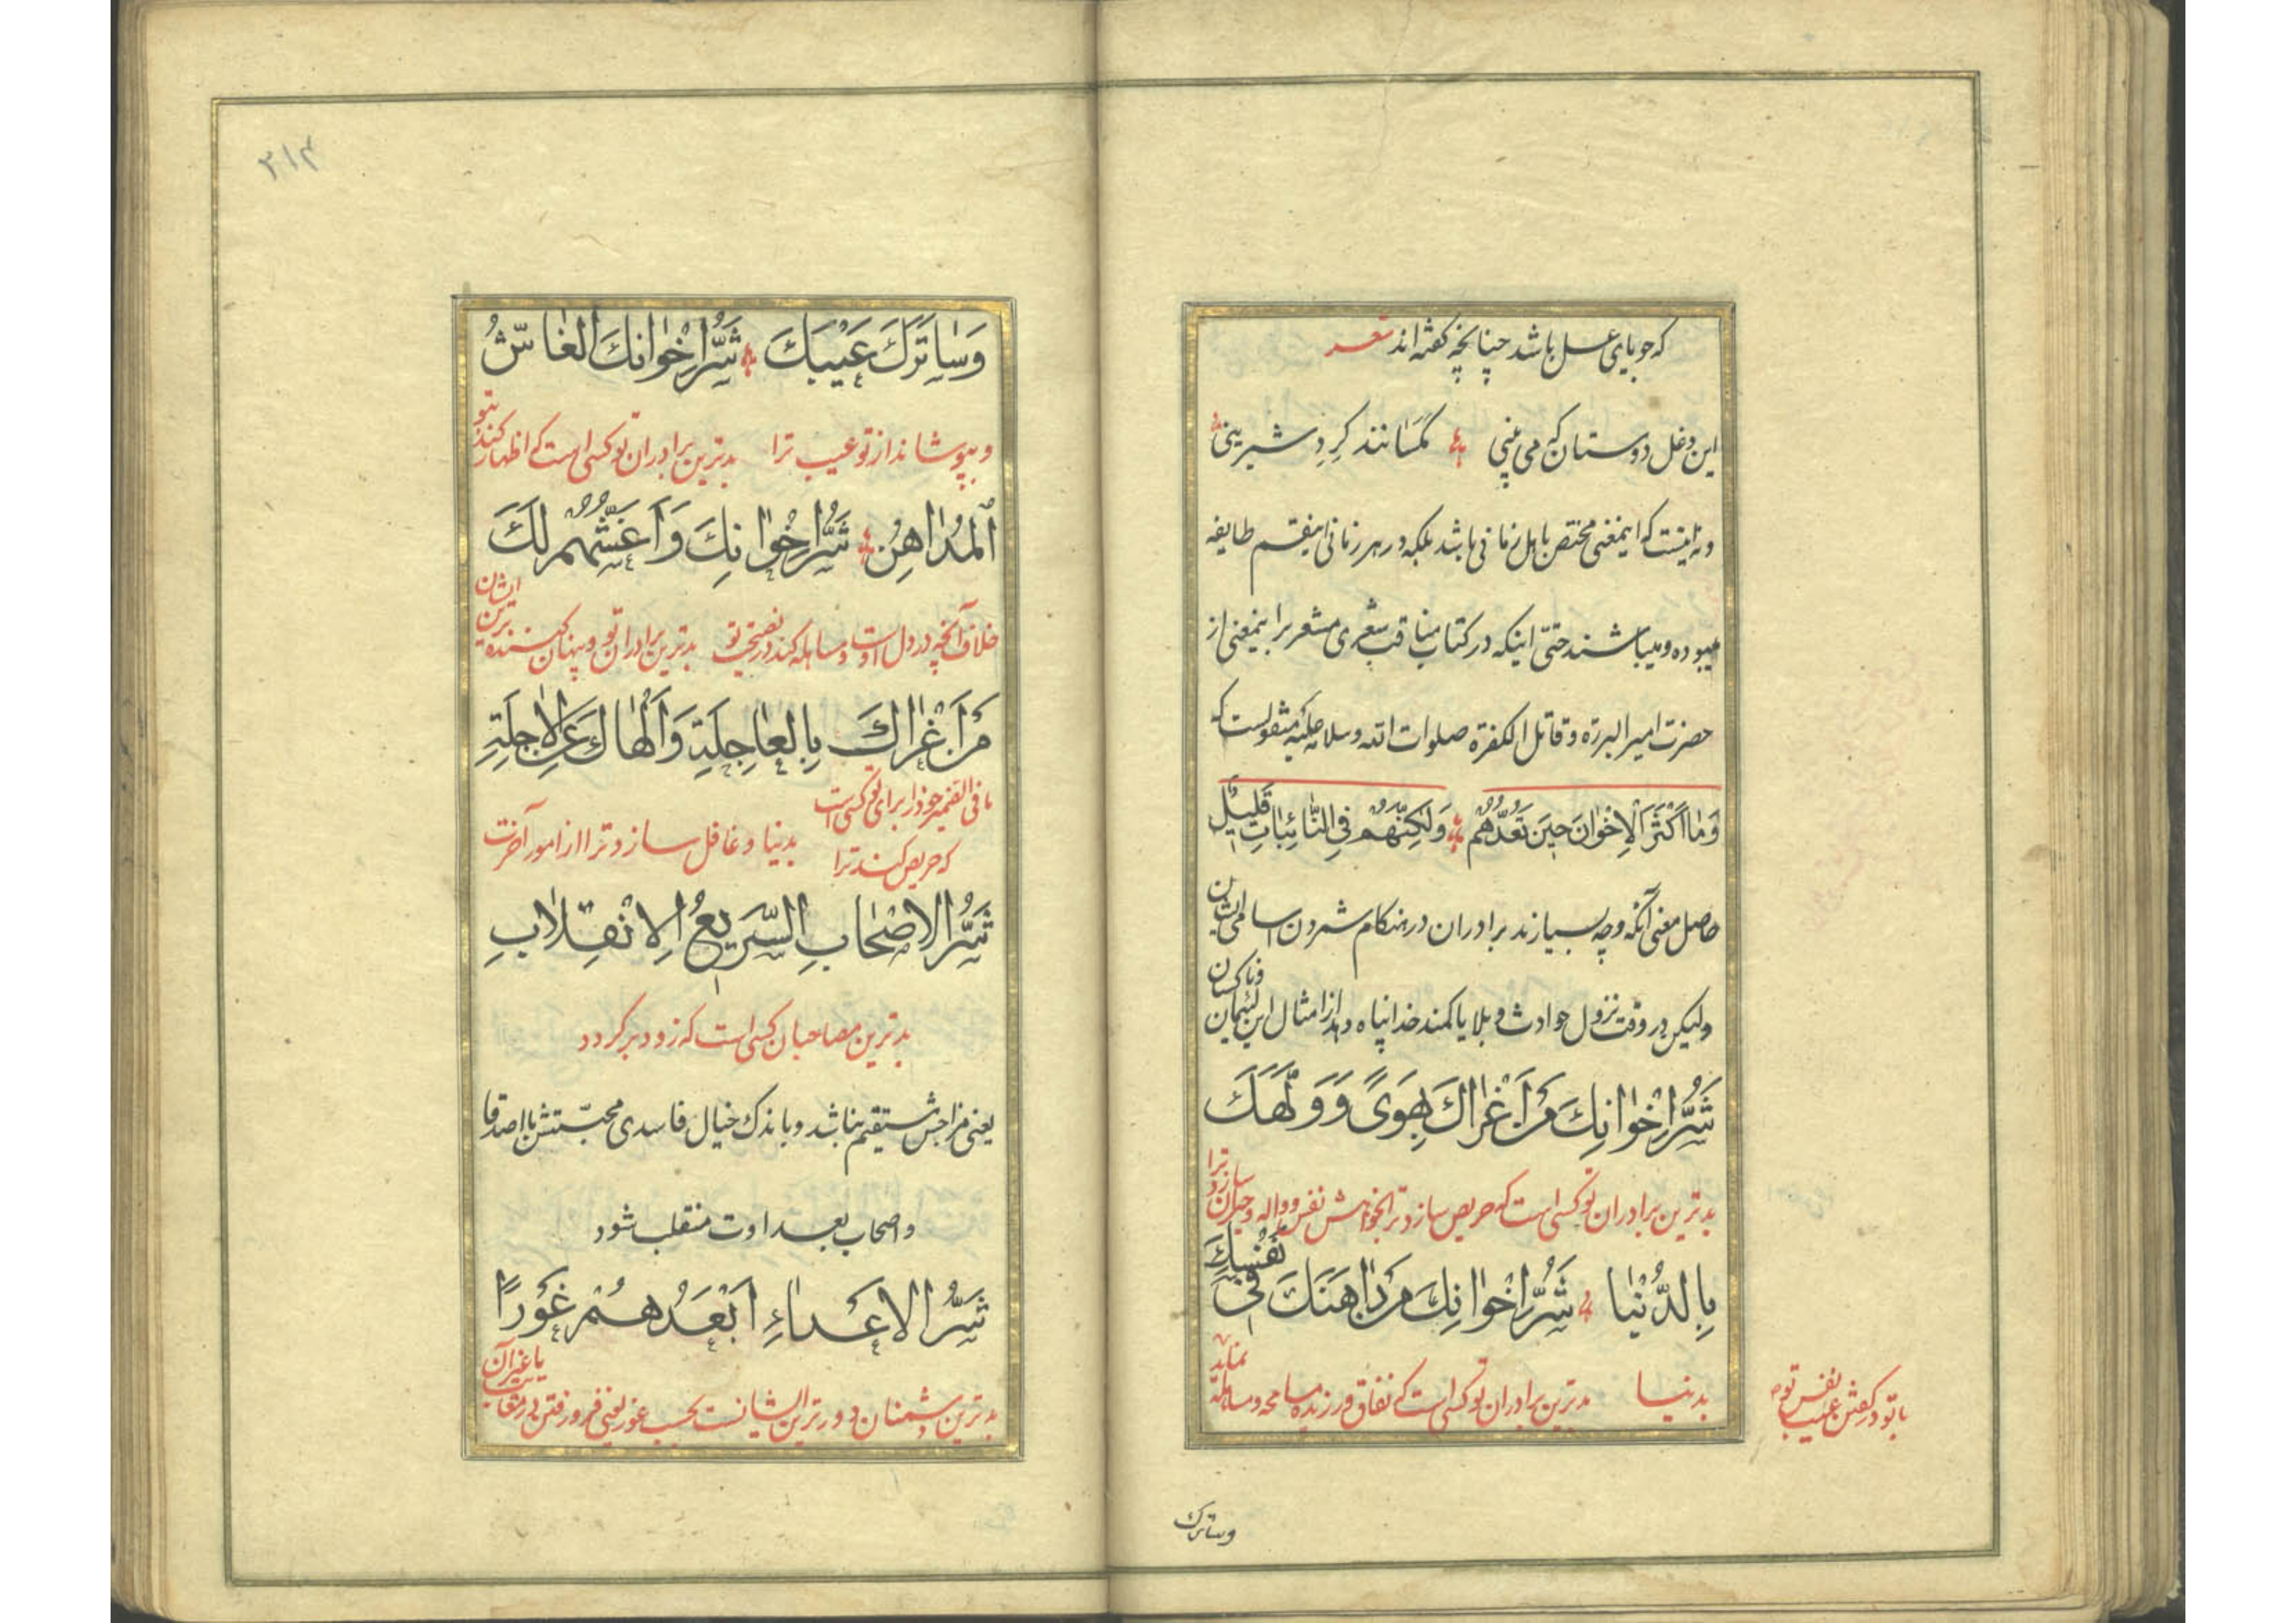 که جویای عسل باشد چنانچه گفته‌اند شعر
این دغل دوستان که می بینی مگسانند گرد شیرینی
ونه اینست که اینمعنی مختص باهل زمانی باشد بلکه در هر زمانی اینقسم طایفه
میبوده و میباشند حتّی اینکه در کتاب مناقب شعری مشعر براینمعنی از
حضرت امیر البررة و قاتل الکفرة صلوات الله وسلامه علیه منقولست که
وَمٰا اَکْثَرَ الْاِخْوٰانَ حِینَ تَعُدُّهُم وَلٰکِنَّهُم فِی النّٰائِبٰاتِ قَلِیلٌ
حاصل معنی آنکه وچه بسیارند برادران در هنکام شمردن اسامی ایشان
ولیکن در وقت نزول حوادث و بلایا کمند خدا پناه دهد از امثال این لئیمان
شَرُّ اِخْوٰانِكَ مَنْ اَغْرٰاكَ بِهَویً وَ وَلَّهَكَ
بدترین برادران تو کسی است که حریص سازد ترا بخواهش نفس و واله و حیران سازد ترا
بِالدُّنْیٰا شَرُّ اِخْوٰانِكَ مَنْ دٰاهَنَكَ فی نَفْسِكَ
بدنیا بدترین برادران تو کسی است که نفاق ورزنده و مسامحه و مساهله نماید
با تو در گفتن عیب نفس تو
وساترک
۳۱۴
وَسٰاتَرَكَ عَیْبَكَ شَرُّ اِخْوٰانِكَ الْغٰاشُّ
و بپوشاند از تو عیب ترا بدترین برادران تو کسی است که اظهار کند بتو
اَلْمُدٰاهِنُ شَرُّ اِخْوٰانِكَ وَ اَغَشُّهُم لَكَ
خلاف آنچه در دل اوست و مساهله کند در نصیحت تو بدترین برادران تو و پنهان کننده ترین ایشان
مَنْ اَغْرٰاكَ بِالْعٰاجِلَةِ وَ اَلْهٰاكَ عَنِ الْاٰجِلَةِ
ما فی الضمیر خود را برای تو کسی است
که حریص کند ترا بدنیا و غافل سازد ترا از امور آخرت
شَرُّ الْاَصْحٰابِ السَّرِیعُ الْاِنْقِلٰابِ
بدترین مصاحبان کسی است که زود برگردد
یعنی مزاجش مستقیم نباشد و باندک خیال فاسدی محبّتش با اصدقا
و اصحاب بعداوت منقلب شود
شَرُّ الْاَعْدٰاءِ اَبْعَدُهُمْ غَوْرًا
بدترین دشمنان دورترین ایشانست بحسب غور یعنی فرو رفتن در مغایبت یا غیر آن